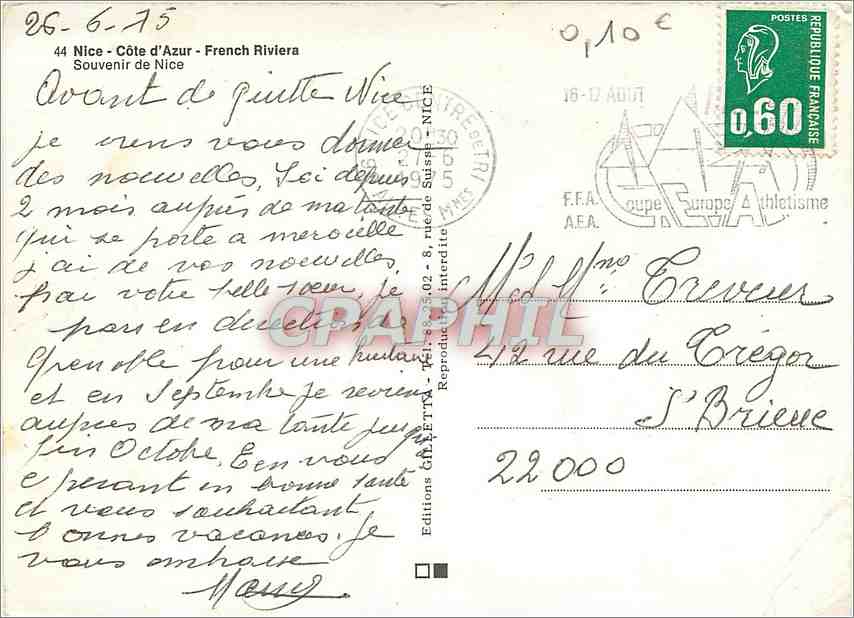 26-6-75
44 Nice - Côte d'Azur - French Riviera
Souvenir de Nice
Avant de quitte Nice
je viens vous donner
des nouvelles, Ici depuis
2 mois auprès de ma tante
qui se porte a merveille
j'ai de vos nouvelles
par votre belle sœur. Je
pars en direction de
Grenoble pour une
et en Septembre je reviens
auprès de ma tante jusqu'a
fin Octobre. En vous
esperant en bonne santé
et vous souhaitant
bonnes vacances. Je
vous embrasse
Editions GILLETTA - Tél. 88.25.02 - 8, rue de Suisse - NICE
Reproduction interdite
0,10 €
NICE CENTRE DE TRI
20 H 30
1975
A MMES
16-17 AOUT
F.F.A.
A.E.A.
Coupe Europe Athletisme
POSTES
REPUBLIQUE FRANÇAISE
0,60
Mr et Mme Treveur
42 rue du Trégor
St Brieuc
22000
CPAPHIL